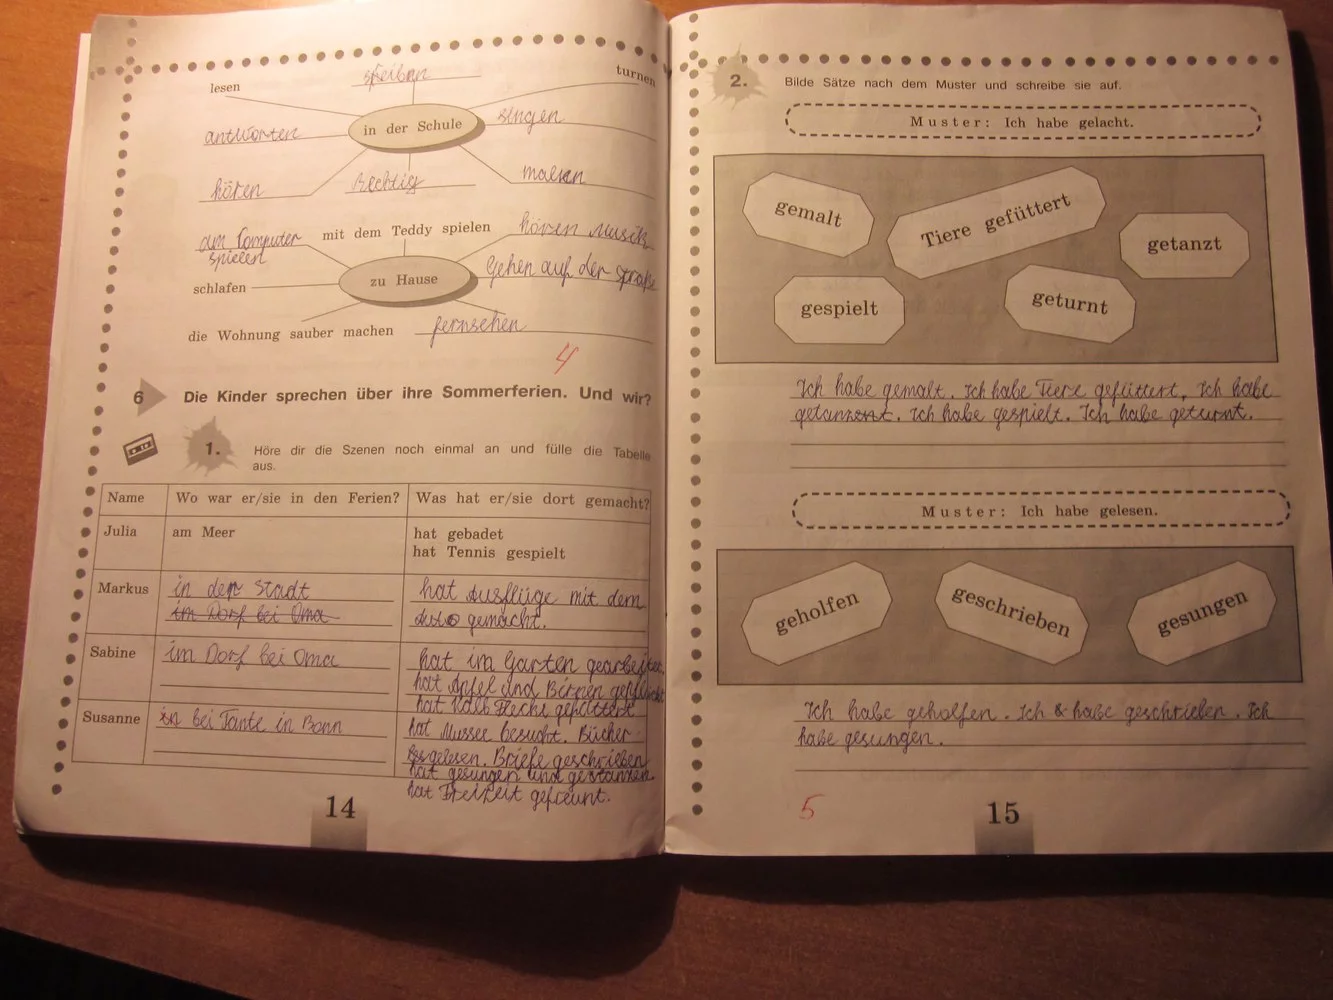 lesen
turnen
antworten
in der Schule
singen
hören
malen
am Computer
spielen
mit dem Teddy spielen
hören Musik
schlafen
zu Hause
gehen auf der Straße
die Wohnung sauber machen
fernsehen
4
6 Die Kinder sprechen über ihre Sommerferien. Und wir?
1. Höre dir die Szenen noch einmal an und fülle die Tabelle
aus.
Name Wo war er/sie in den Ferien? Was hat er/sie dort gemacht?
Julia am Meer hat gebadet
hat Tennis gespielt
Markus in der Stadt hat Ausflüge mit dem
im Dorf bei Oma Auto gemacht.
Sabine im Dorf bei Oma hat im Garten gearbeitet.
hat Apfel und Birnen
hat
Susanne in bei Tante in Bonn hat besucht. Bücher
gelesen. Briefe geschrieben
hat gesungen und
hat
14
2. Bilde Sätze nach dem Muster und schreibe sie auf.
Muster: Ich habe gelacht.
gemalt
Tiere gefüttert
getanzt
gespielt
geturnt
Ich habe gemalt. Ich habe Tiere gefüttert, Ich habe
Ich habe gespielt. Ich habe geturnt.
Muster: Ich habe gelesen.
geholfen
geschrieben
gesungen
Ich habe geholfen. Ich habe geschrieben. Ich
habe gesungen.
5
15